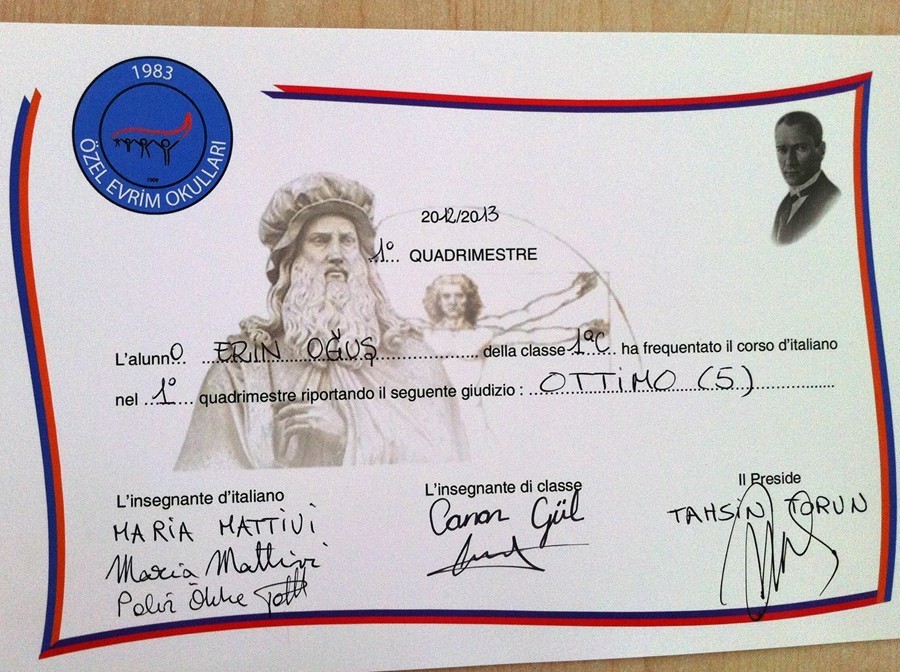 1983
ÖZEL EVRİM OKULLARI
2012/2013
1° QUADRIMESTRE
L'alunnO ERIN OĞUŞ della classe 1ªC ha frequentato il corso d'italiano
nel 1° quadrimestre riportando il seguente giudizio : OTTIMO (5)
L'insegnante d'italiano
MARIA MATTIVI
Maria Mattivi
L'insegnante di classe
Canan Gül
Il Preside
TAHSİN TORUN